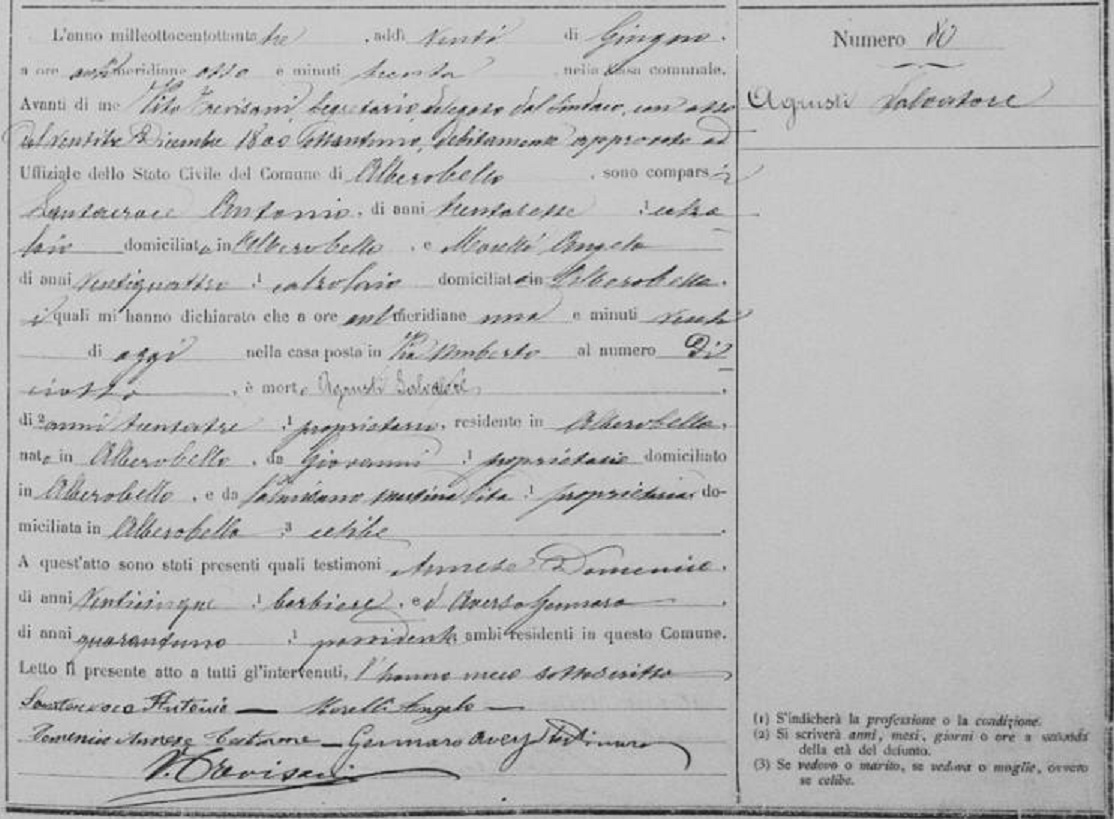 L'anno milleottocentottanta tre, addì venti di Giugno.
a ore antimeridiane otto e minuti trenta, nella Casa comunale.
Avanti di me Vito Trevisani Segretario, delegato dal Sindaco, con atto
del ventitre Dicembre 1800 ottantuno, debitamente approvato ad
Uffiziale dello Stato Civile del Comune di Alberobello, sono comparsi
Santacroce Antonio, di anni trentasette, (1) calzo
laio domiciliato in Alberobello, e Morelli Angelo
di anni ventiquattro, (1) calzolaio domiciliato in Alberobello.
i quali mi hanno dichiarato che a ore antimeridiane una e minuti venti
di oggi nella casa posta in Via Umberto al numero Di
ciotto, è morto Agrusti Salvatore
di (2) anni trentatre, (1) proprietario, residente in Alberobello,
nato in Alberobello, da Giovanni, (1) proprietario domiciliato
in Alberobello, e da Martina Vita, (1) proprietaria do-
miciliata in Alberobello, (3) celibe
A quest'atto sono stati presenti quali testimoni Annese Domenico.
di anni venticinque, (1) barbiere, e d'Aversa Gennaro
di anni quarantuno, (1) possidente, ambi residenti in questo Comune.
Letto il presente atto a tutti gl'intervenuti, l'hanno meco sottoscritto
Santacroce Antonio — Morelli Angelo —
Domenico Annese Testimone — Gennaro
V. Trevisani
Numero 80
Agrusti Salvatore
(1) S'indicherà la professione o la condizione.
(2) Si scriverà anni, mesi, giorni o ore a seconda
della età del defunto.
(3) Se vedovo o marito, se vedova o moglie, ovvero
se celibe.